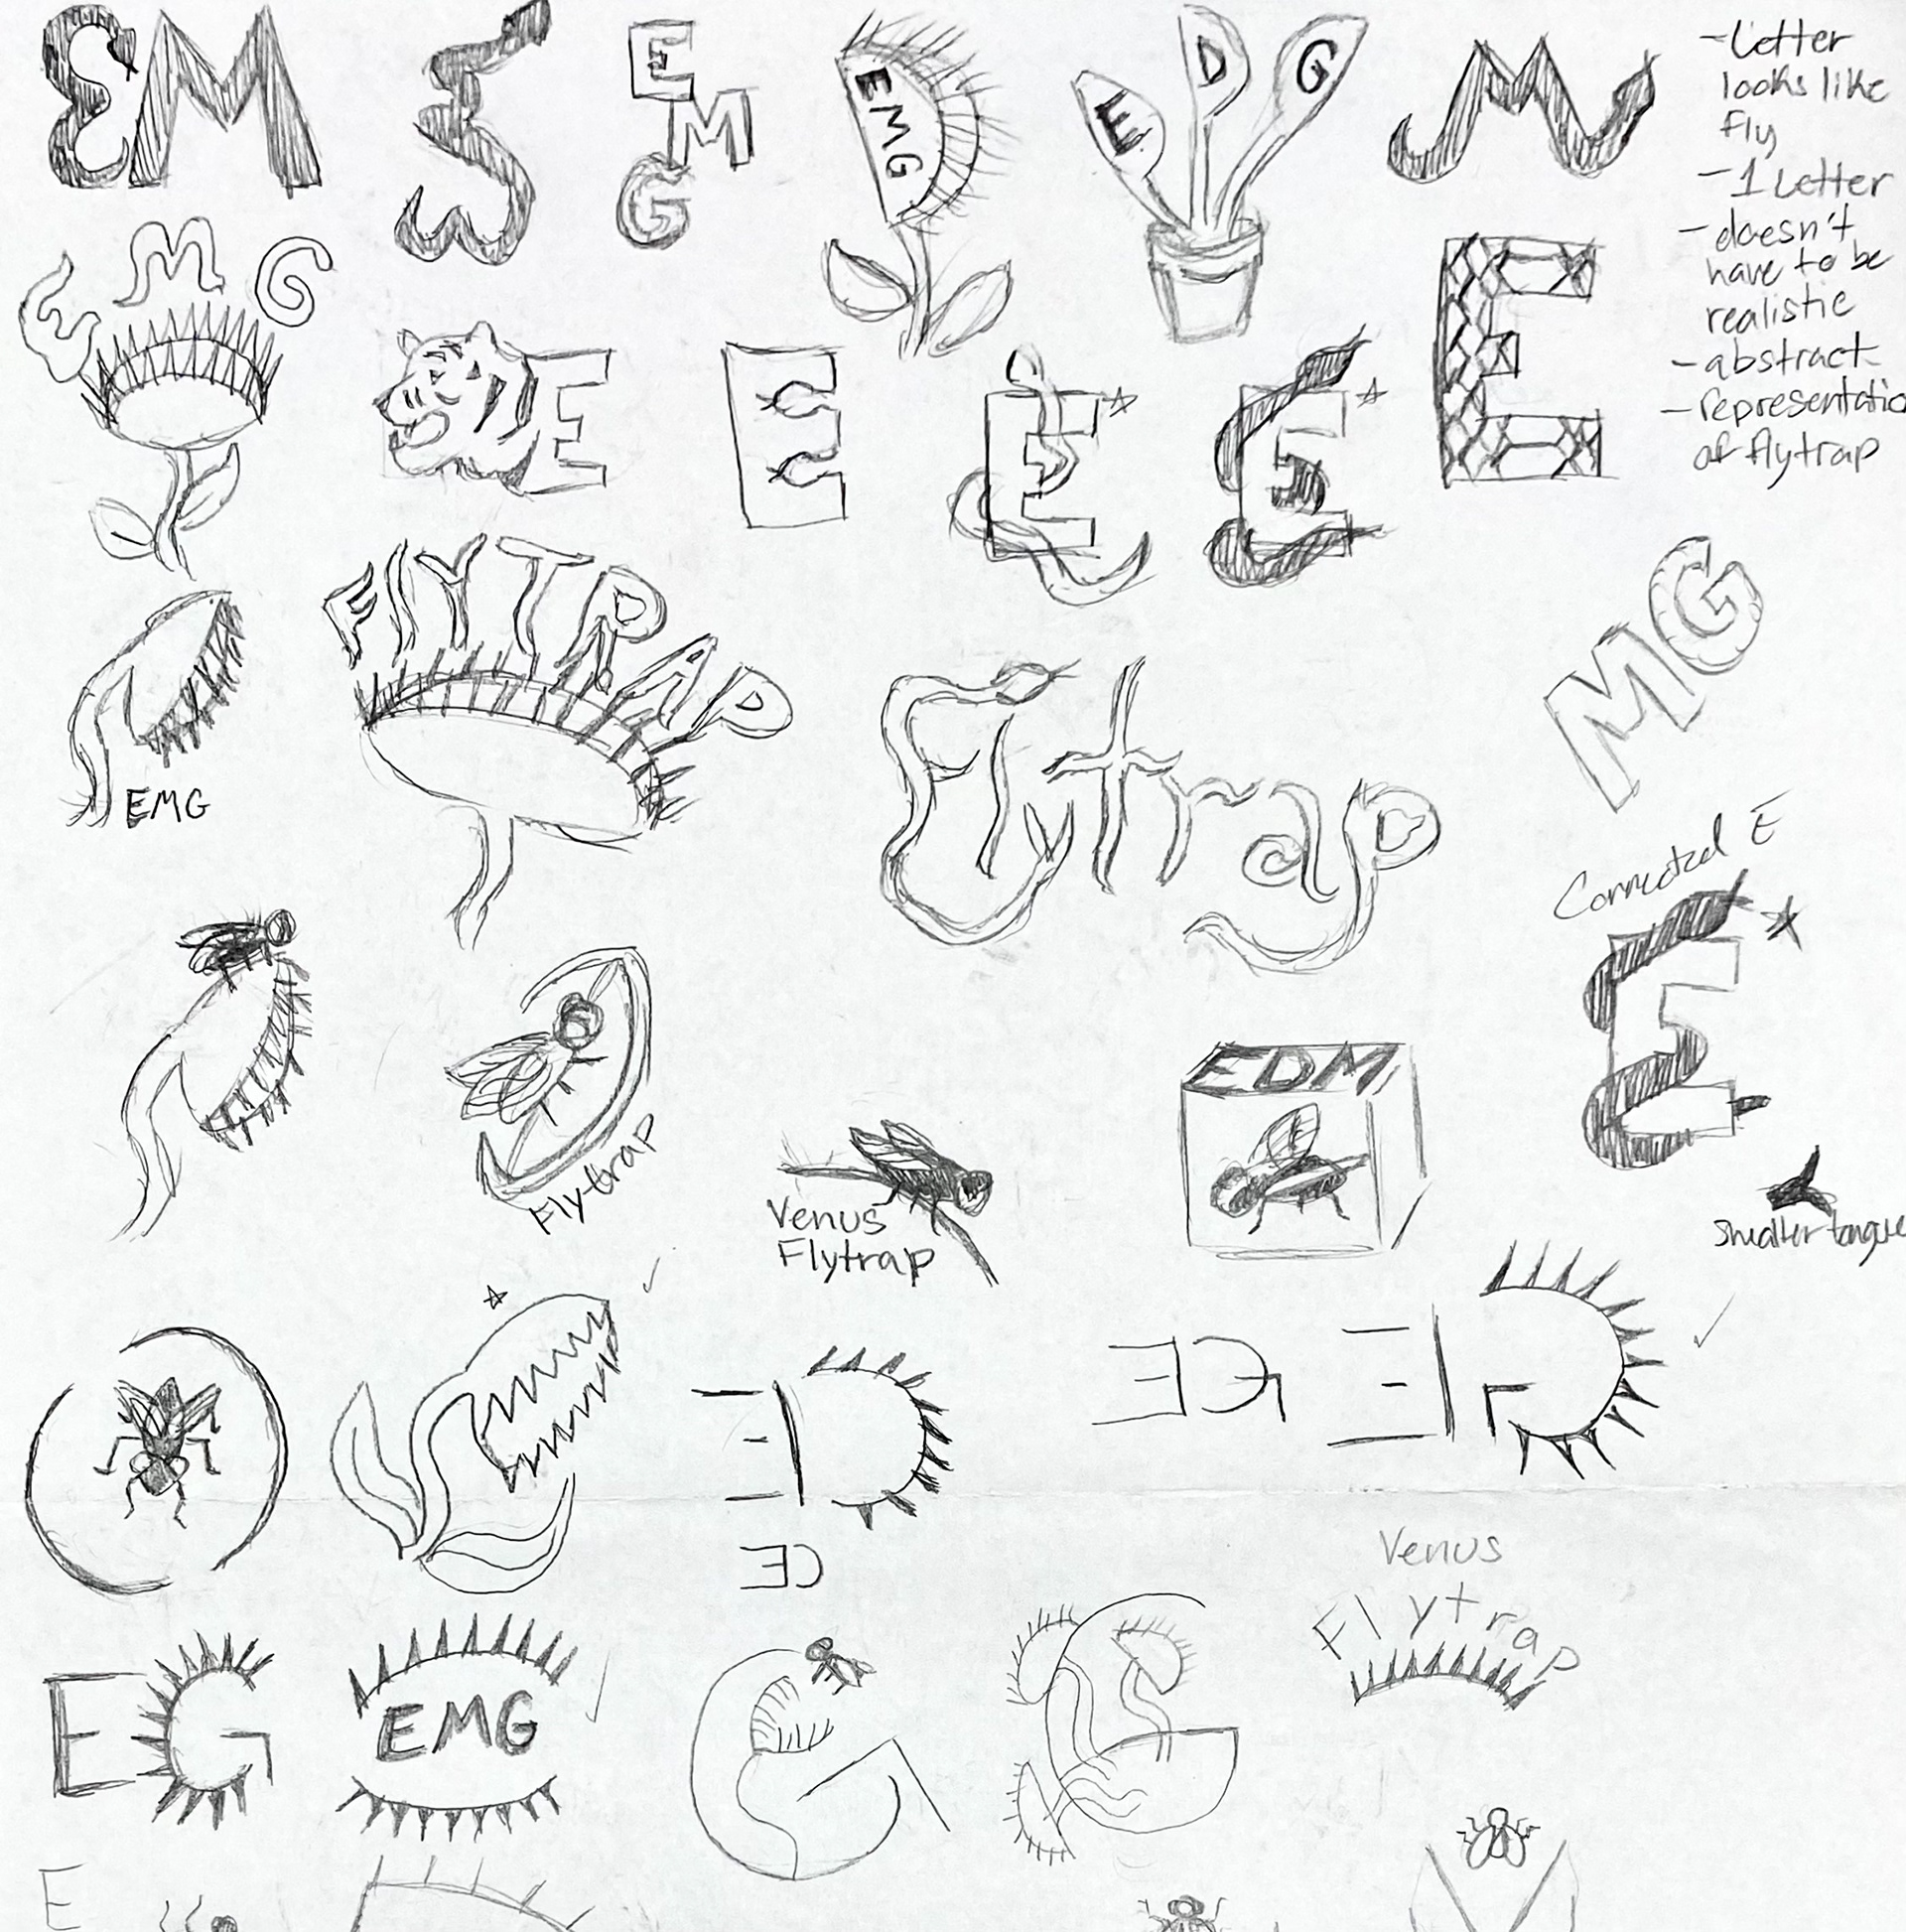 EM
E
E
M
G
EMG
E D G
M
- Letter
looks like
fly
- 1 Letter
- doesn't
have to be
realistic
- abstract
- representation
of flytrap
E M G
E
E
E
E
E
FLYTRAP
MG
EMG
Flytrap
Connected E
E
Flytrap
EDM
Venus
Flytrap
smaller tongue
EG
EG
EC
Venus
Flytrap
EG
EMG
G
G
E